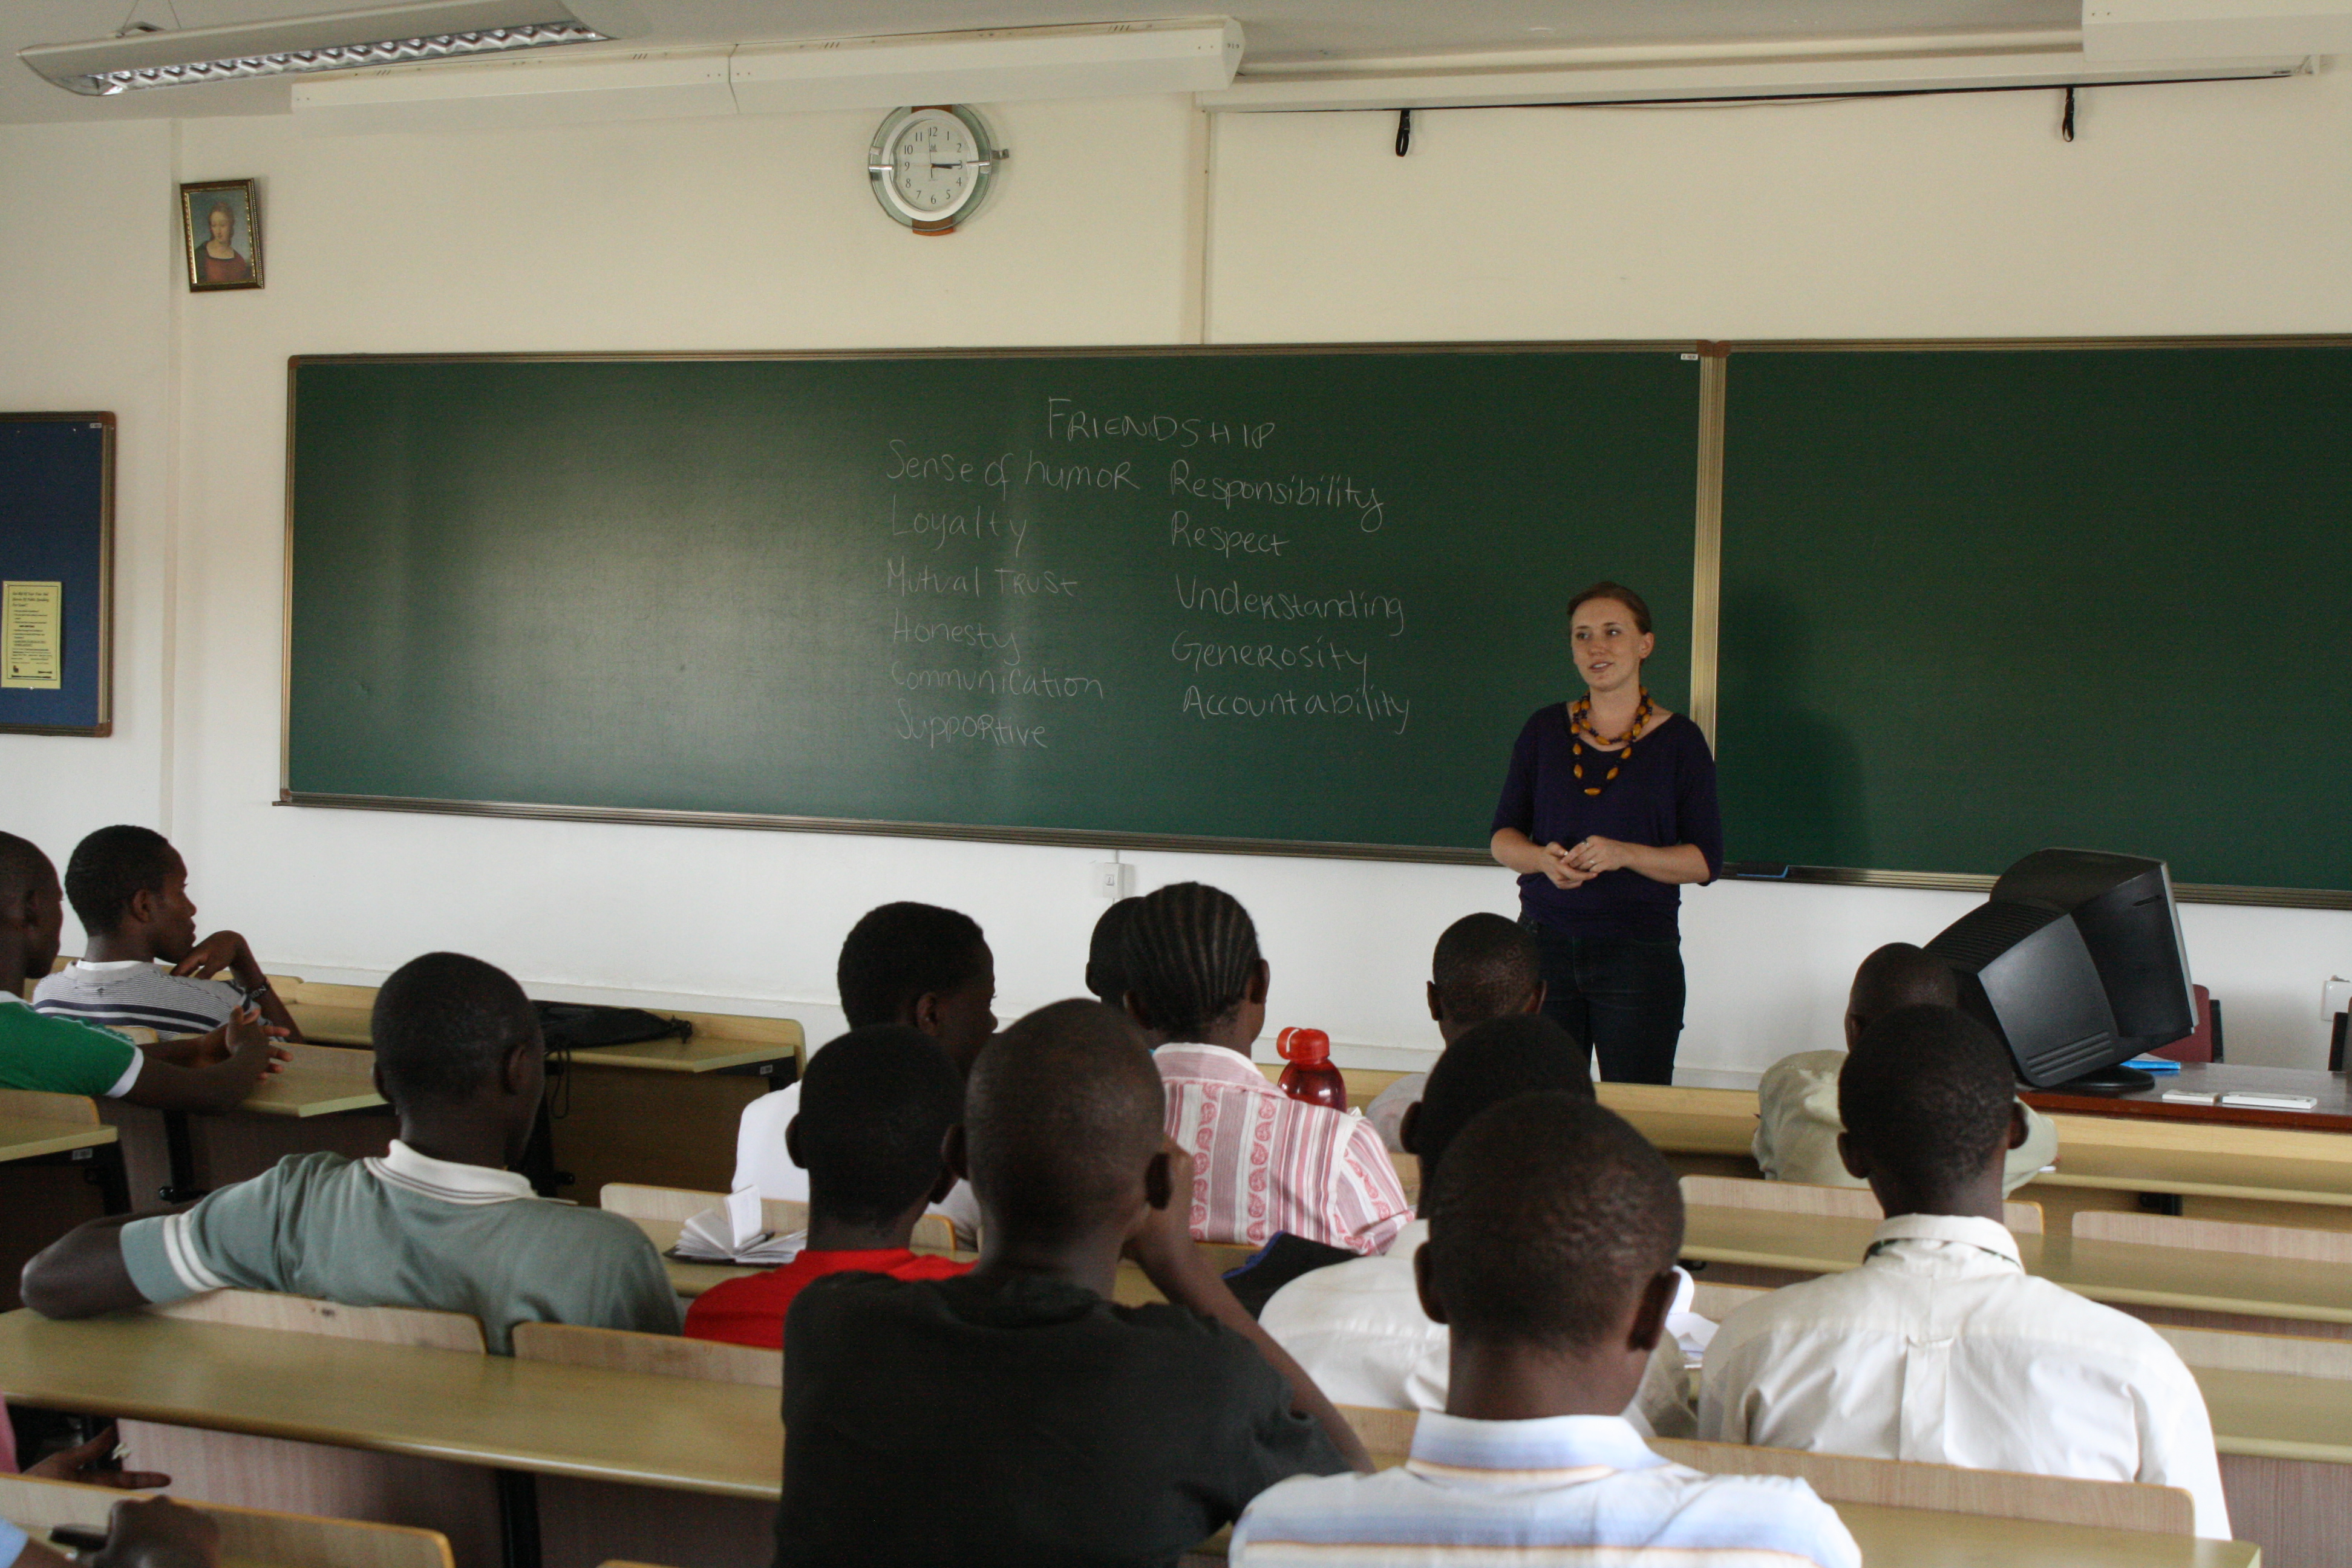 FRIENDSHIP
Sense of humor
Loyalty
Mutual Trust
Honesty
Communication
Supportive
Responsibility
Respect
Understanding
Generosity
Accountability
12
1
2
3
4
5
6
7
8
9
10
11